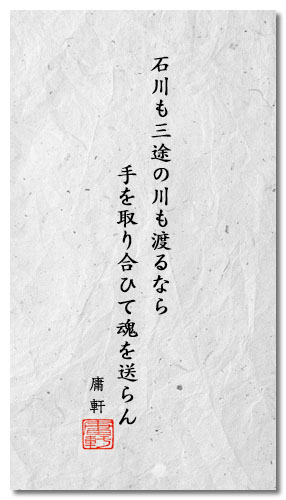 石川も三途の川も渡るなら
手を取り合ひて魂を送らん
庸軒